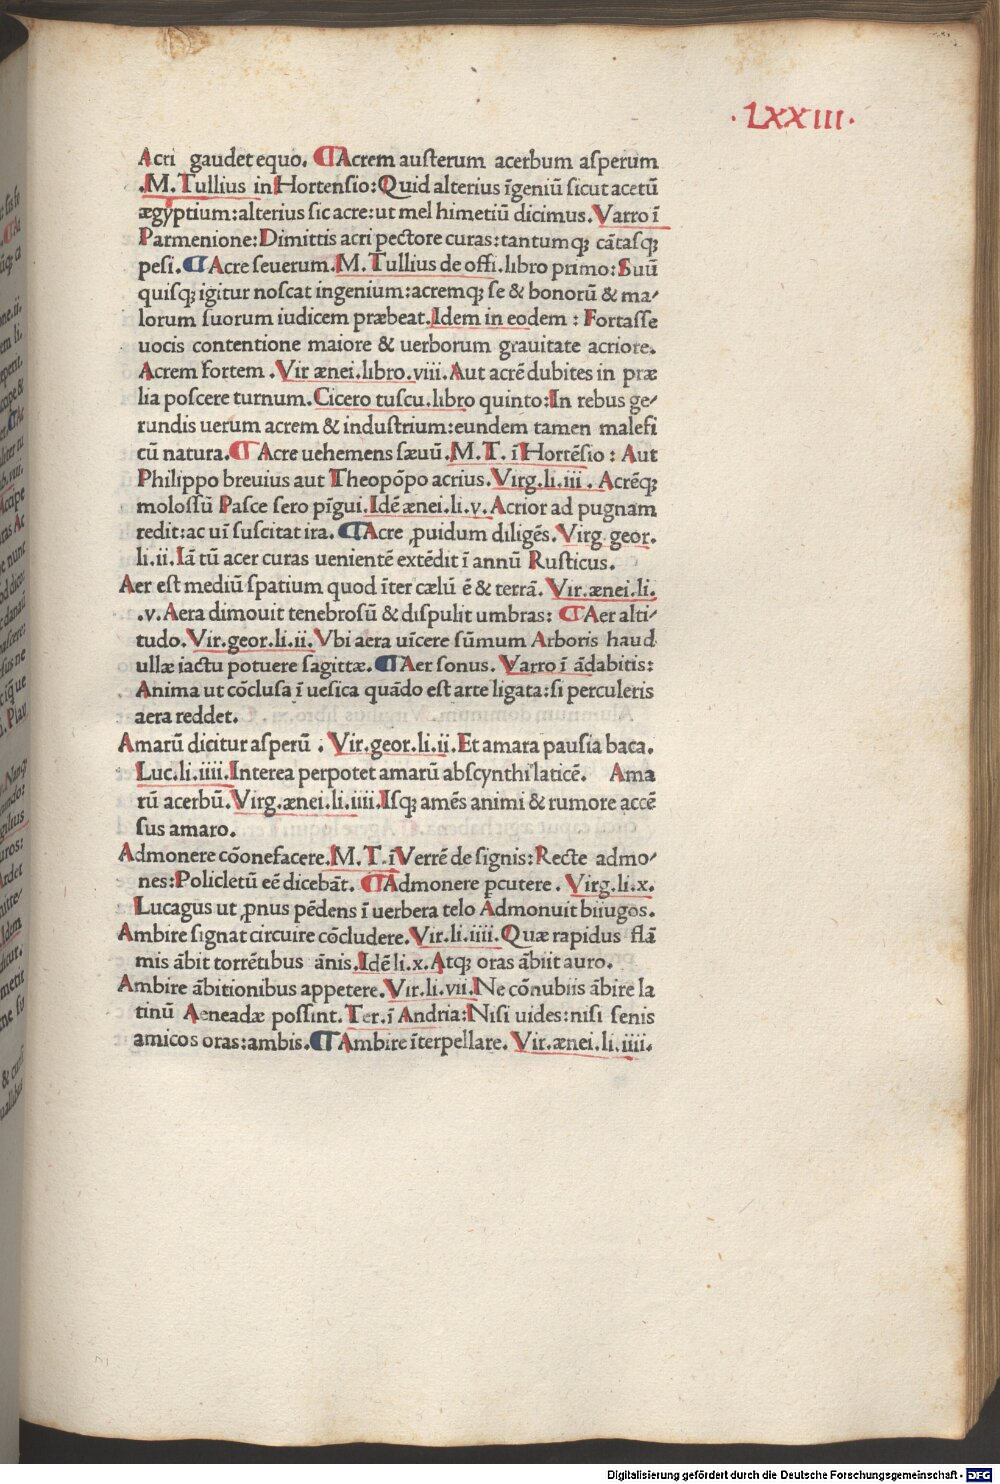 ·LXXIII·
Acri gaudet equo. ¶Acrem austerum acerbum asperum
.M.Tullius in Hortensio:Quid alterius īgeniū sicut acetū
ægyptium:alterius sic acre:ut mel himetiū dicimus.Varro ī
Parmenione:Dimittis acri pectore curas:tantumq; cātasq;
pesi.¶Acre seuerum.M.Tullius de offi.libro primo:Suū
quisq; igitur noscat ingenium:acremq; se & bonorū & ma/
lorum suorum iudicem præbeat.Idem in eodem : Fortasse
uocis contentione maiore & uerborum grauitate acriore.
Acrem fortem .Vir ænei.libro.viii.Aut acrē dubites in præ
lia poscere turnum.Cicero tuscu.libro quinto:In rebus ge/
rundis uerum acrem & industrium:eundem tamen malefi
cū natura.¶ Acre uehemens sæuū.M.T. ī Hortēsio : Aut
Philippo breuius aut Theopōpo acrius.Virg.li.iii . Acrēq;
molossū Pasce sero pīgui.Idē ænei.li.v.Acrior ad pugnam
redit:ac uī suscitat ira. ¶Acre ꝓuidum diligēs.Virg.geor.
li.ii.Iā tū acer curas uenientē extēdit ī annū Rusticus.
Aer est mediū spatium quod īter cælū ē & terrā. Vir.ænei.li.
.v.Aera dimouit tenebrosū & dispulit umbras: ¶Aer alti/
tudo.Vir.geor.li.ii.Vbi aera uīcere sūmum Arboris haud
ullæ iactu potuere sagittæ.¶Aer sonus. Varro ī ādabitis:
Anima ut cōclusa ī uesica quādo est arte ligata:si perculeris
aera reddet.
Amarū dicitur asperū . Vir.geor.li.ii.Et amara pausia baca.
Luc.li.iiii.Interea perpotet amarū abscynthi laticē. Ama
rū acerbū.Virg.ænei.li.iiii.Isq; amēs animi & rumore accē
sus amaro.
Admonere cōonefacere.M.T.ī Verrē de signis:Recte admo/
nes:Policletū eē dicebāt. ¶Admonere pcutere. Virg.li.x.
Lucagus ut ꝓnus pēdens ī uerbera telo Admonuit biiugos.
Ambire signat circuire cōcludere.Vir.li.iiii.Quæ rapidus flā
mis ābit torrētibus ānis.Idē li.x.Atq; oras ābiit auro.
Ambire ābitionibus appetere.Vir.li.vii.Ne cōnubiis ābire la
tinū Aeneadæ possint.Ter.ī Andria:Nisi uides:nisi senis
amicos oras:ambis.¶ Ambire īterpellare. Vir.ænei.li.iiii.
Digitalisierung gefördert durch die Deutsche Forschungsgemeinschaft - DFG